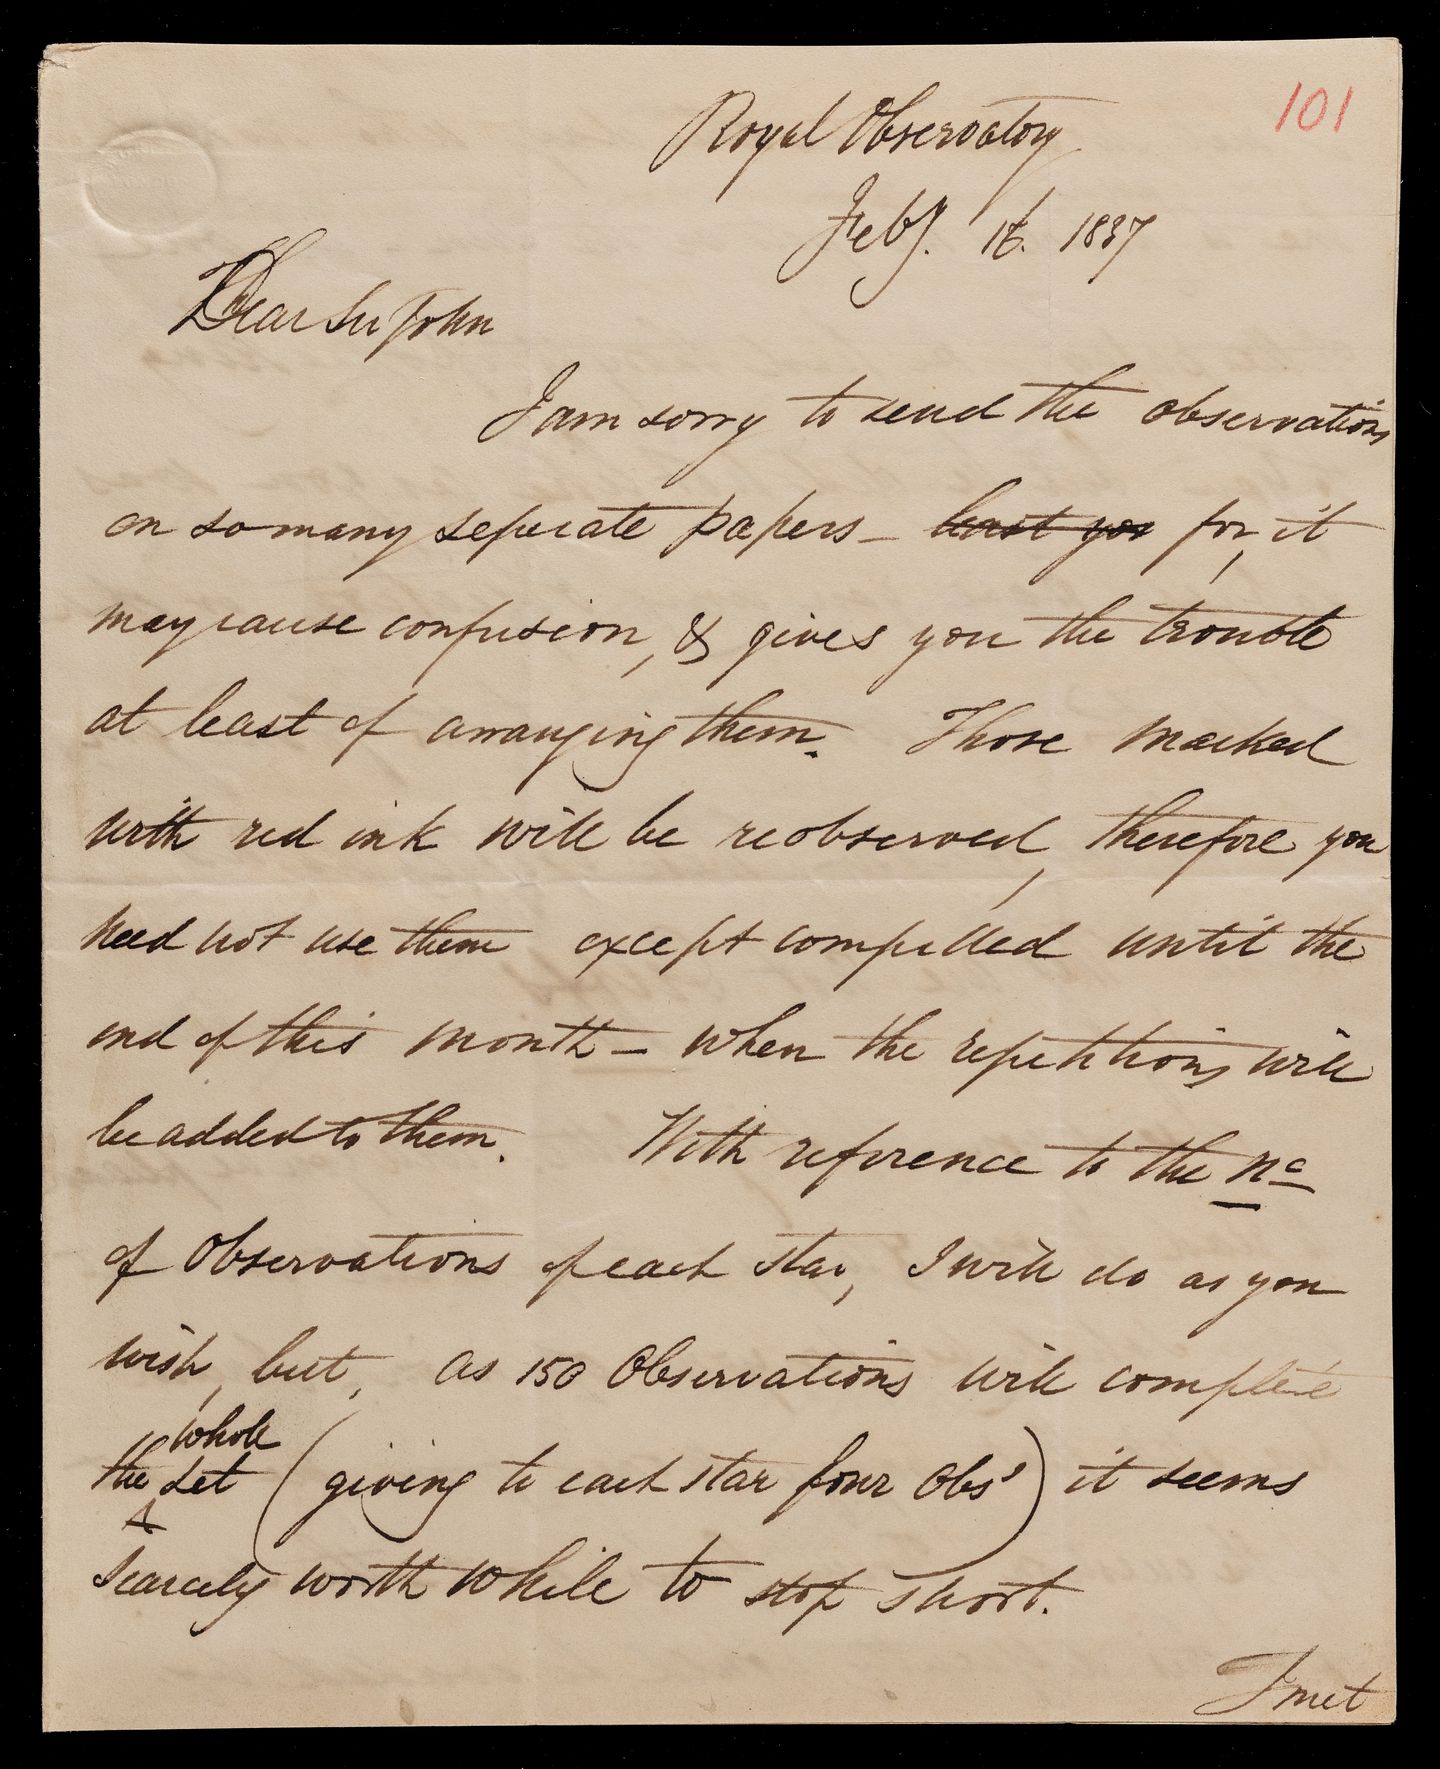 101
Royal Observatory
Feby. 16. 1837
Dear Sir John
I am sorry to send the observations
on so many seperate papers – least you for, it
may cause confusion, & gives you the trouble
at least of arranging them. Those marked
with red ink will be reobserved, therefore you
need not use them except compelled until the
end of this month – when the repetitions will
be added to them. With reference to the no
of Observations of each star, I will do as you
wish, but, as 150 Observations will complete
the whole set (giving to each star four Obss) it seems
scarcely worth while to stop short.
I met